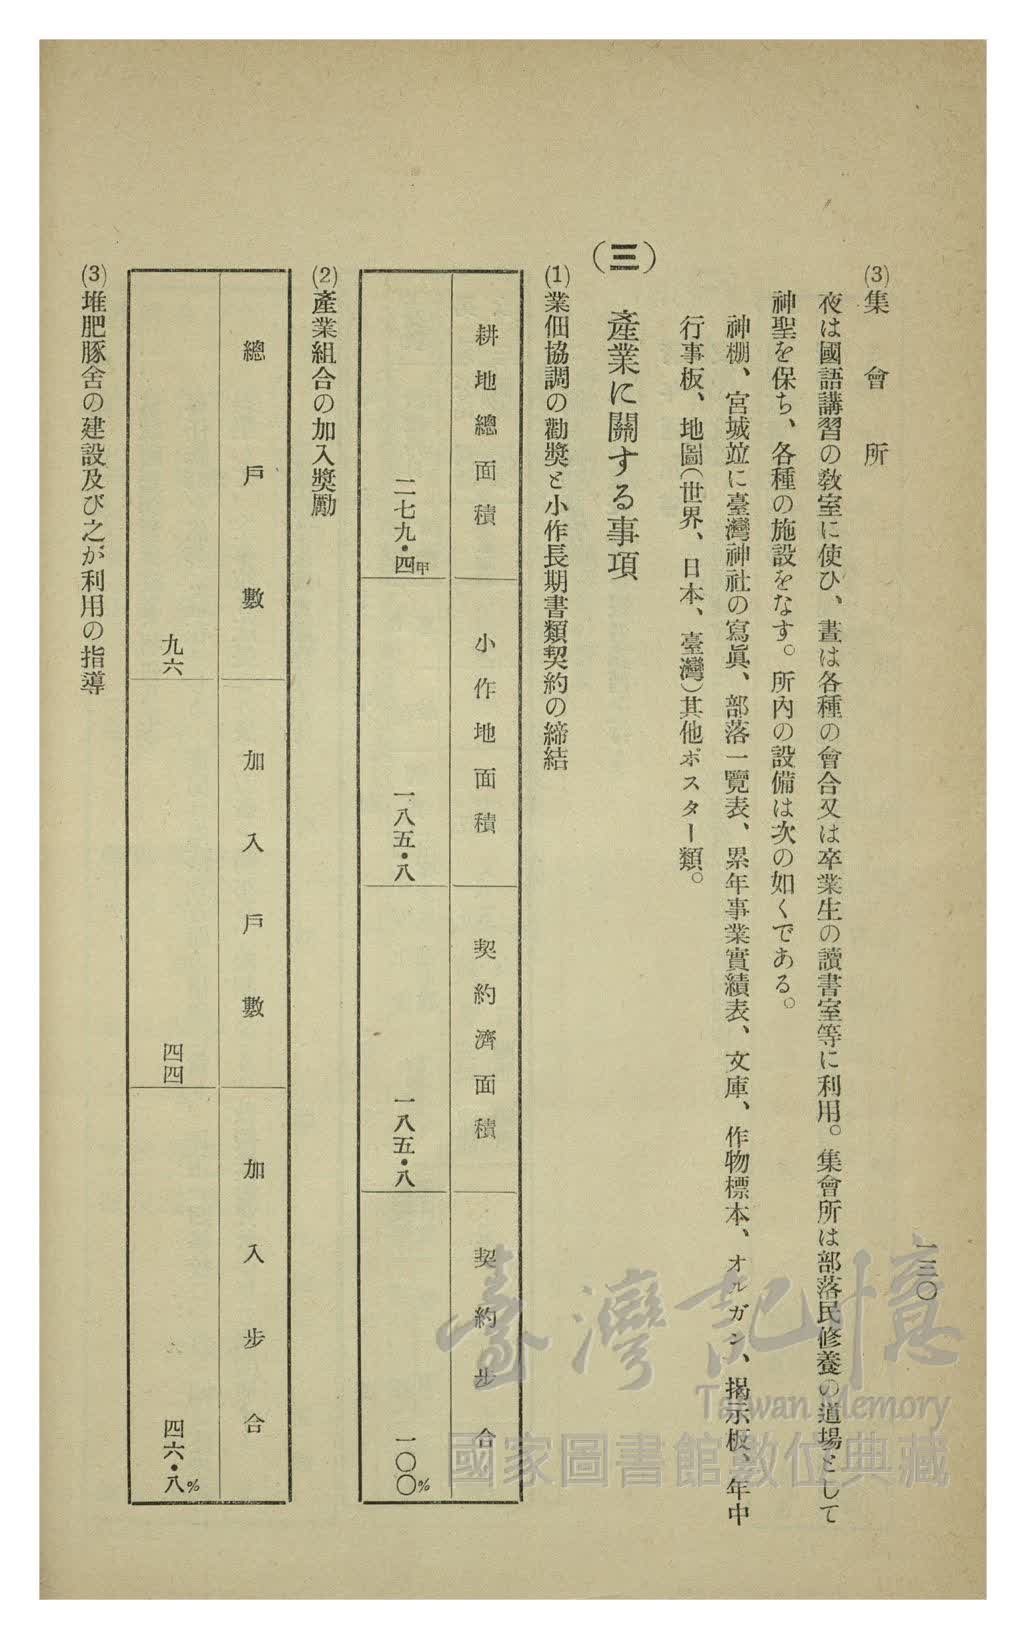 一三〇
(3)集會所
夜は國語講習の敎室に使ひ、晝は各種の會合又は卒業生の讀書室等に利用。集會所は部落民修養の道場として
神聖を保ち、各種の施設をなす。所內の設備は次の如くである。
神棚、宮城竝に臺灣神社の寫眞、部落一覽表、累年事業實績表、文庫、作物標本、オルガン、揭示板、年中
行事板、地圖(世界、日本、臺灣)其他ポスター類。
(三)產業に關する事項
(1)業佃協調の勸獎と小作長期書類契約の締結
耕地總面積 小作地面積 契約濟面積 契約步合
二七九・四甲 一八五・八 一八五・八 一〇〇%
(2)產業組合の加入獎勵
總戶數 加入戶數 加入步合
九六 四四 四六・八%
(3)堆肥豚舍の建設及び之が利用の指導
臺灣記憶
Taiwan Memory
國家圖書館數位典藏